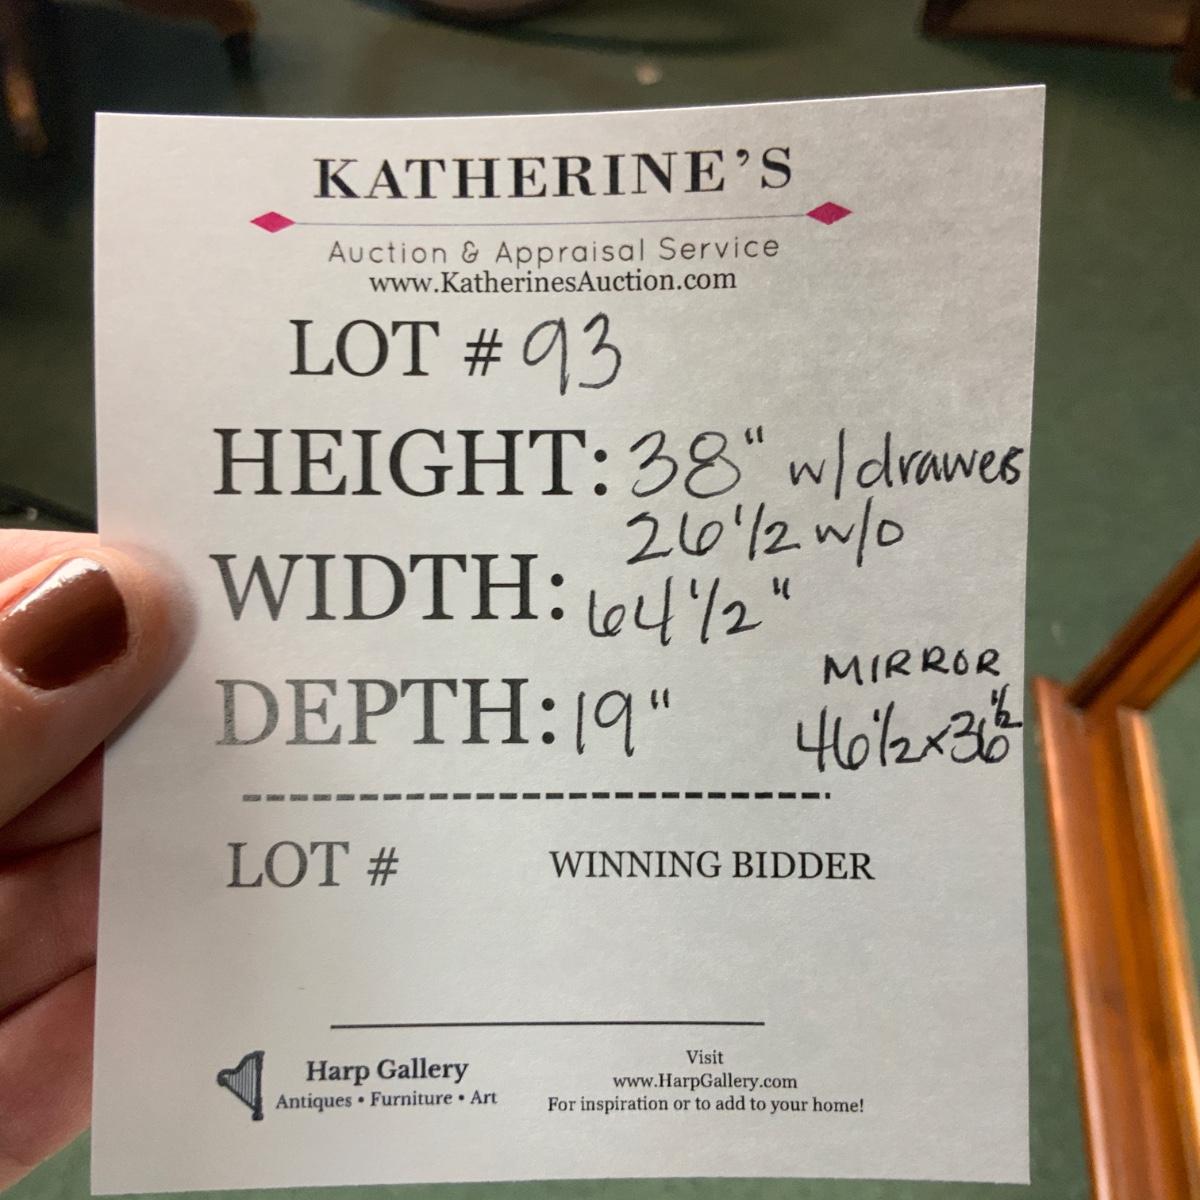 KATHERINE'S
Auction & Appraisal Service
www.KatherinesAuction.com
LOT # 93
HEIGHT: 38" w/drawers
26 1/2 w/o
WIDTH: 64 1/2"
MIRROR
DEPTH: 19" 46 1/2 x 36 1/2
LOT # WINNING BIDDER
Harp Gallery
Antiques • Furniture • Art
Visit
www.HarpGallery.com
For inspiration or to add to your home!